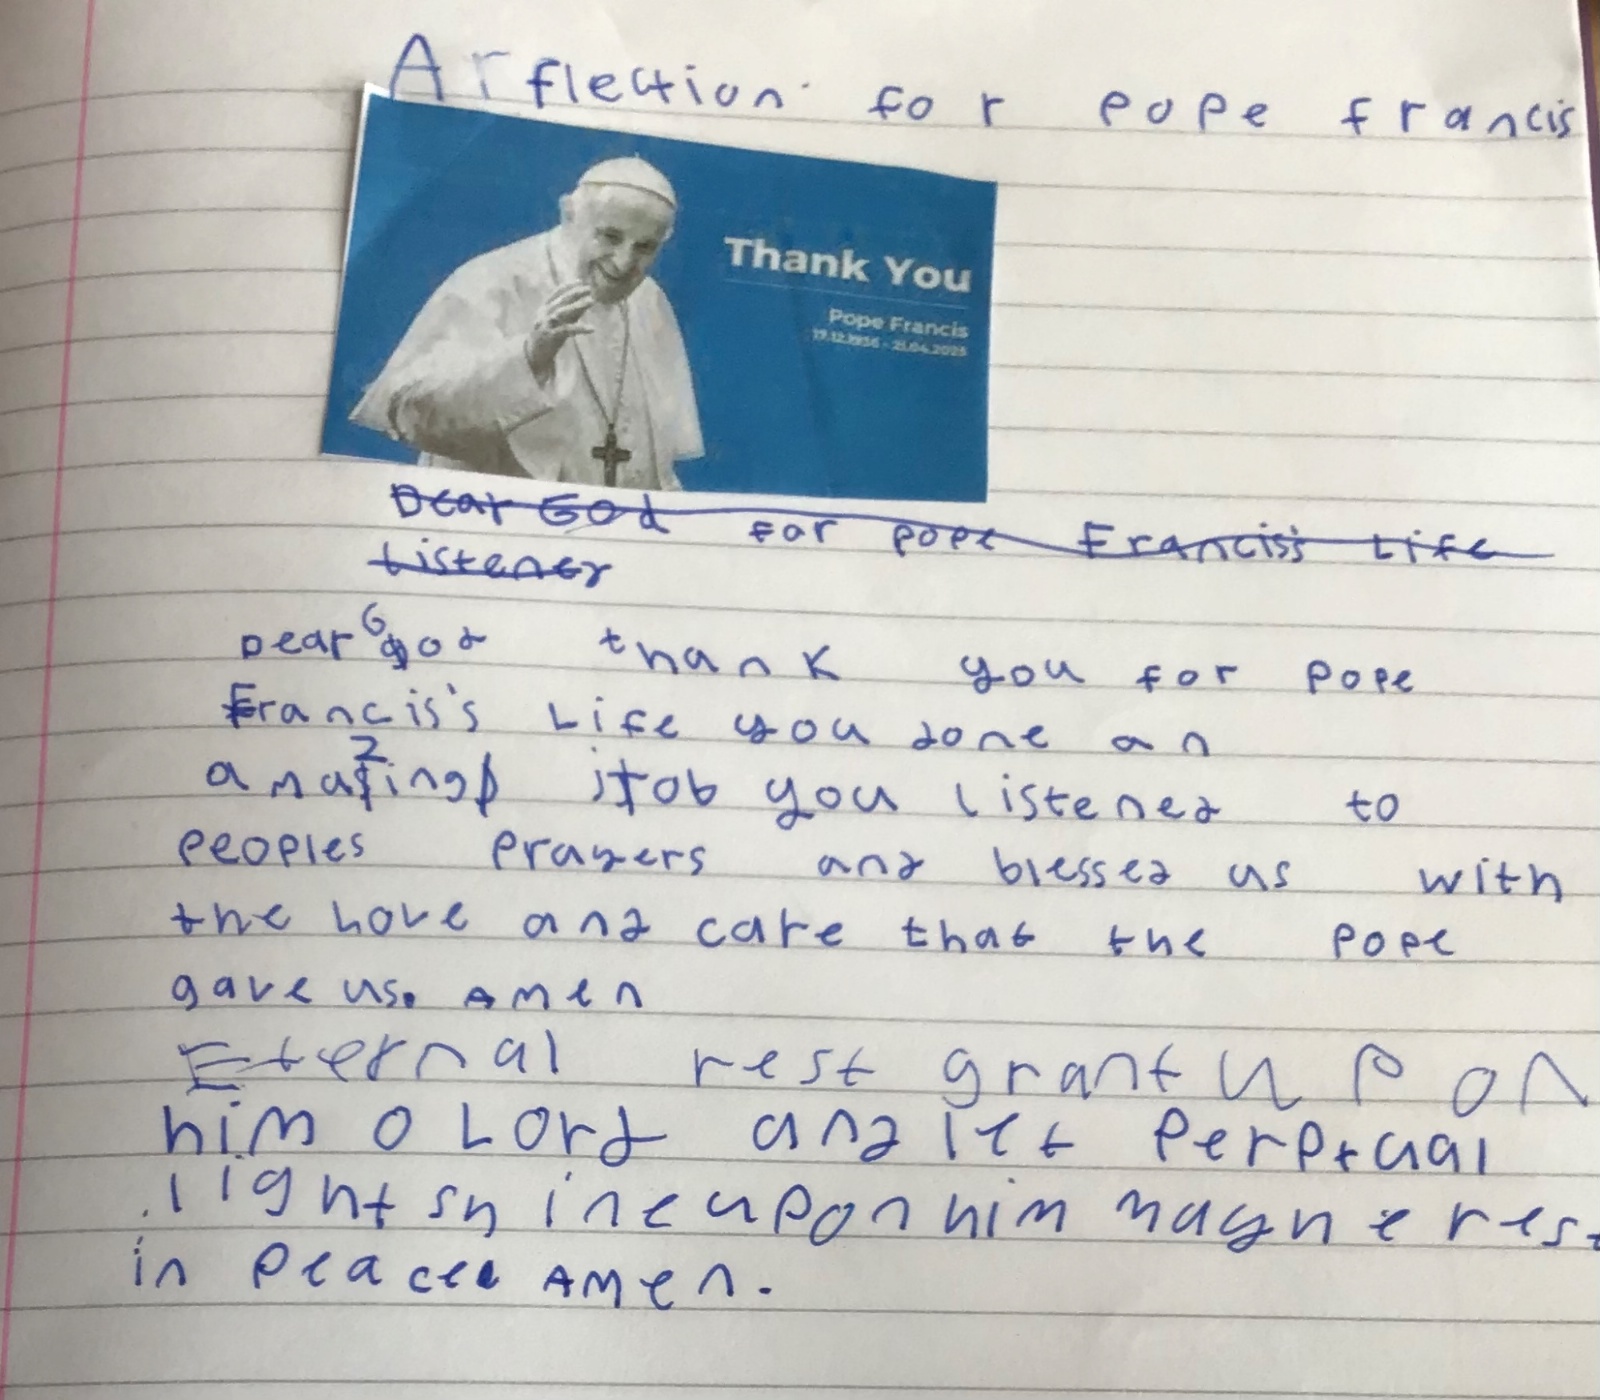 A rflection for pope francis
Thank You
Pope Francis
17.12.1936 - 21.04.2025
Dear God for pope Francis's Life
Listener
Dear God thank you for Pope
Francis's Life you done an
amazing job you listened to
peoples prayers and blessed us with
the Love and care that the Pope
gave us. Amen
Eternal rest grant upon
him O Lord and let Perptual
light shine upon him may he rest
in peace Amen.